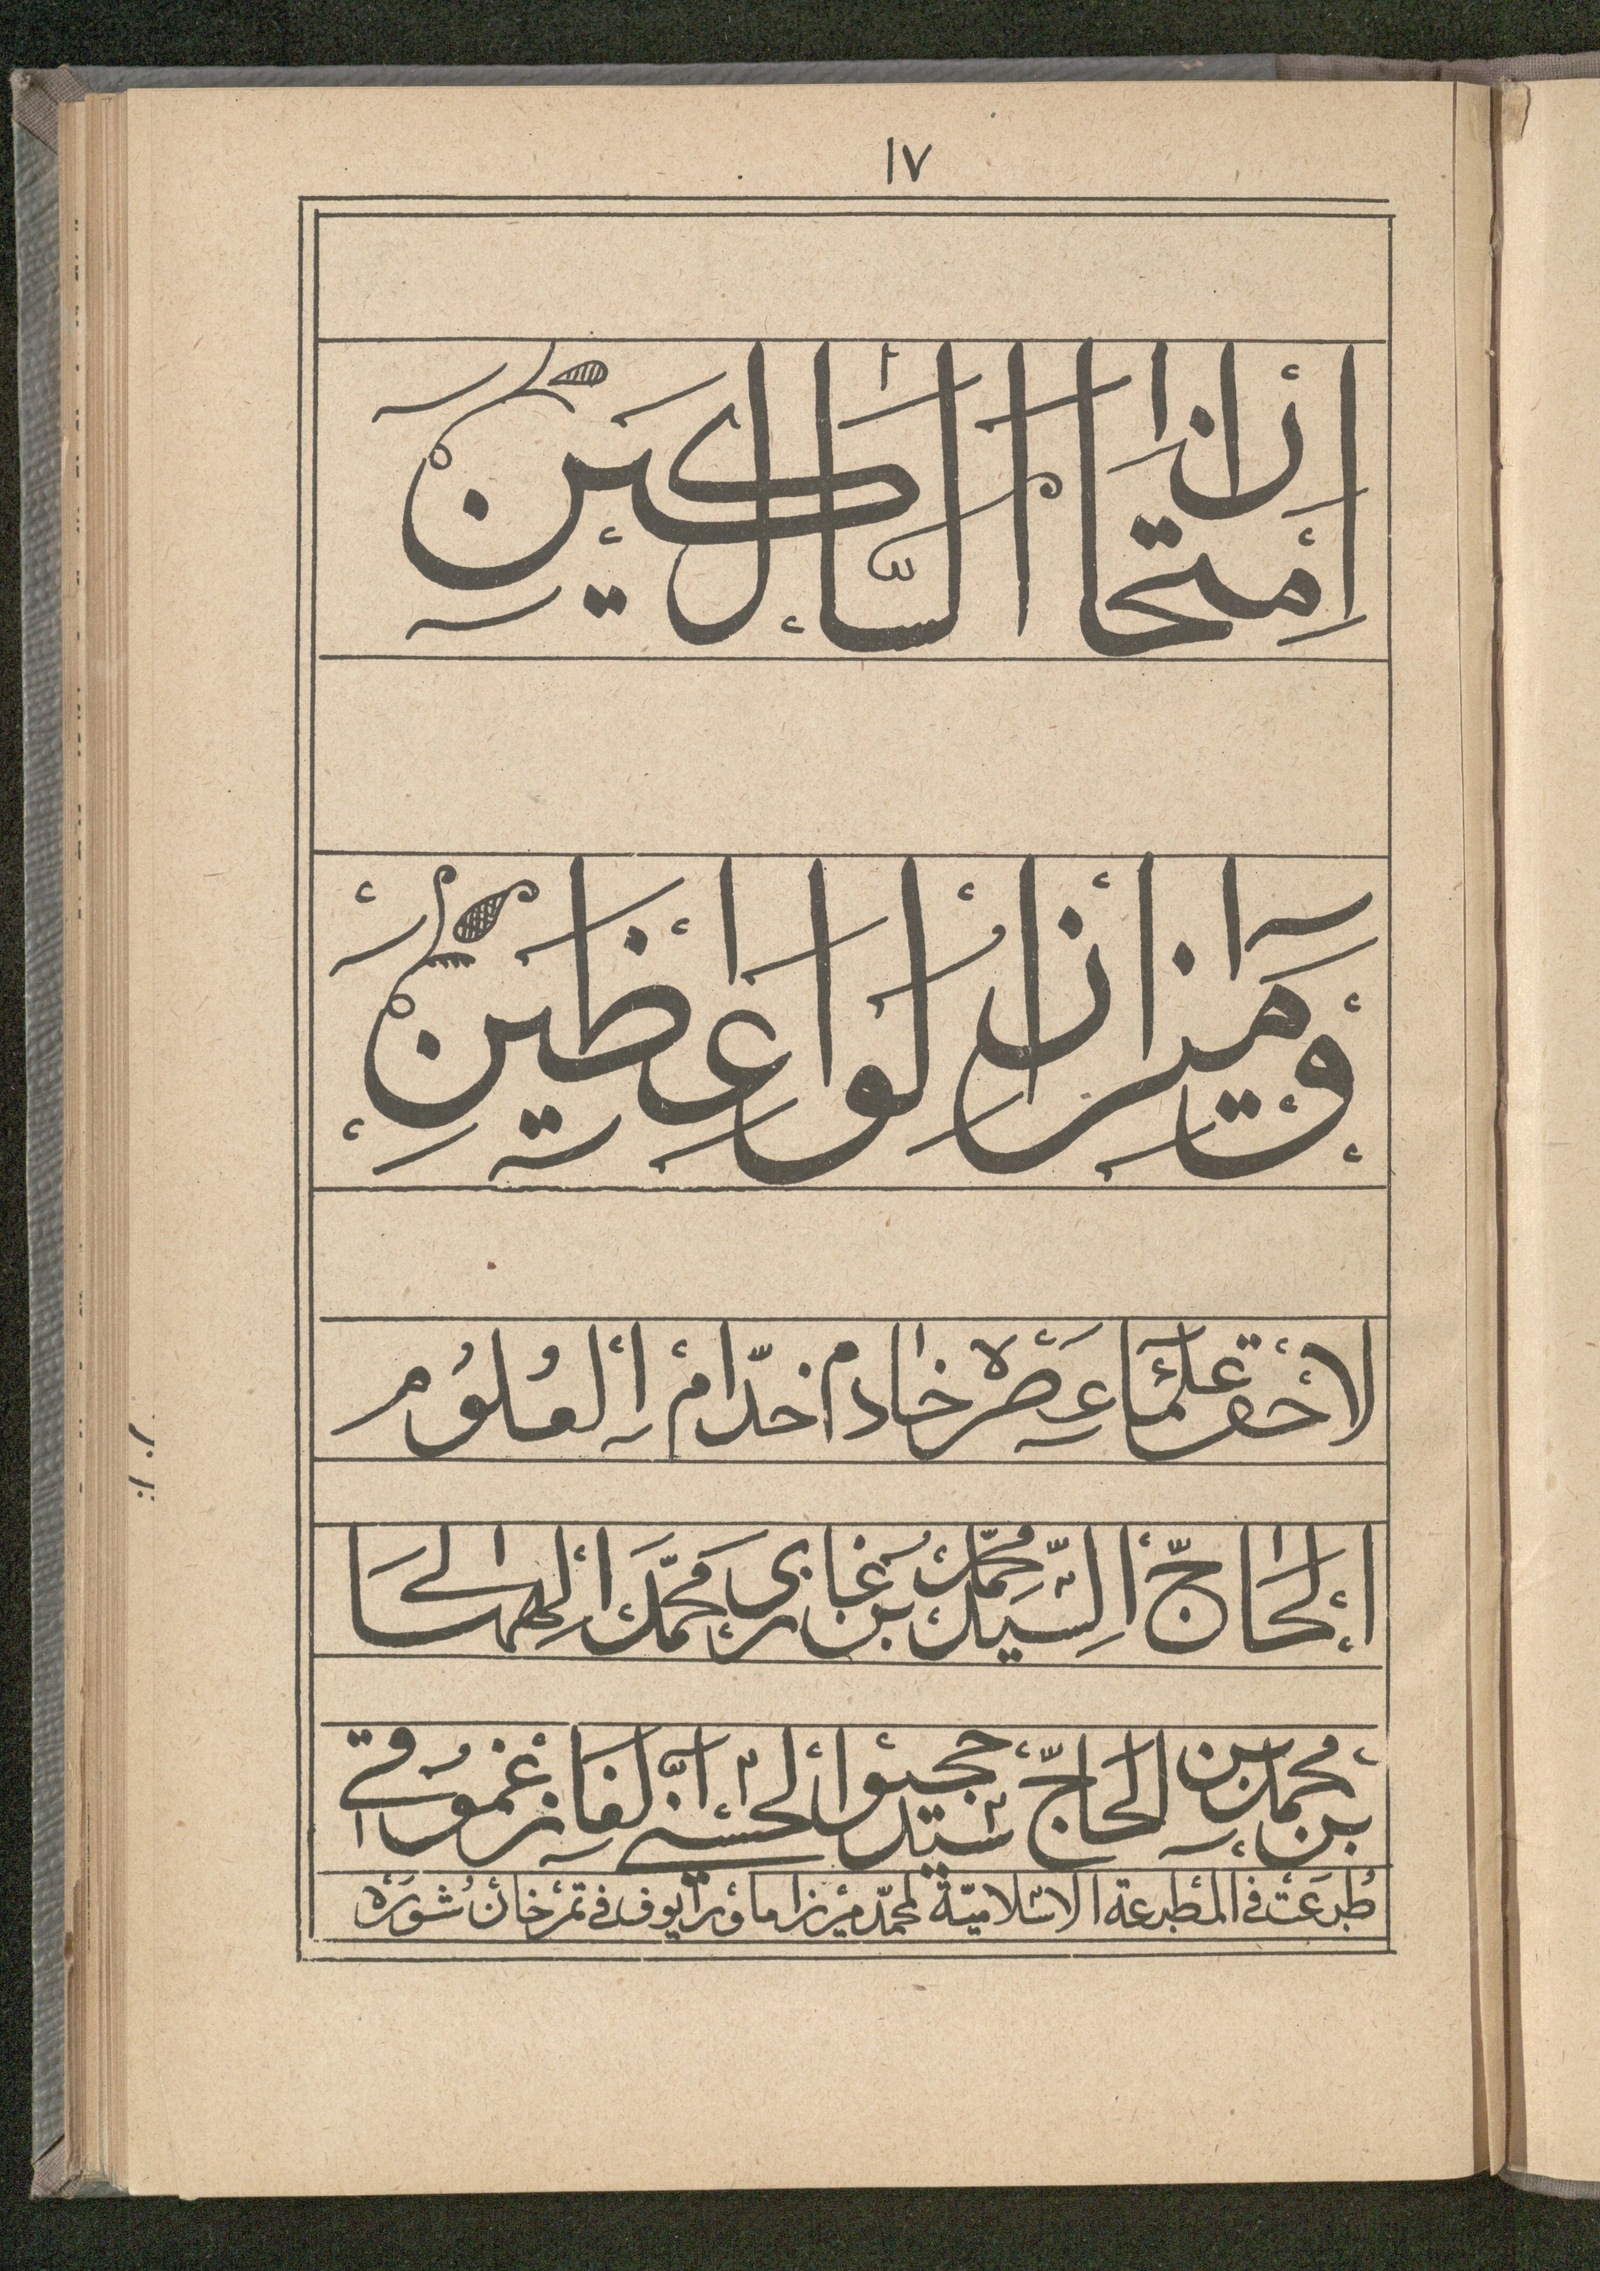 ١٧
اِمْتِحَانُ السَّالِكِينَ
وَمِيزَانُ الْوَاعِظِينَ
لاحقر علماء عصره خادم خدّام العلوم
الحاجّ السيّد محمّد بن غازي محمّد
بن محمد بن الحاجّ سيّد الحسيني الغازغموقي
طبعت في المطبعة الاسلاميّة لمحمّد ميرزا ماورايوف في تمرخان شوره